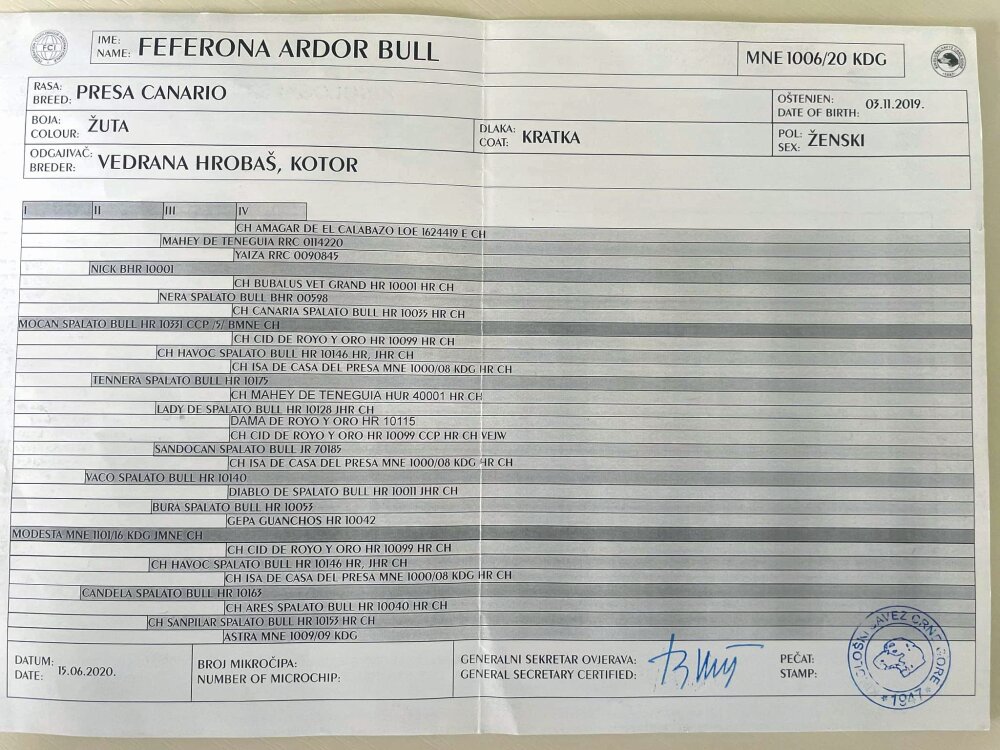 FCI
IME:
NAME: FEFERONA ARDOR BULL
MNE 1006/20 KDG
RASA:
BREED: PRESA CANARIO
OŠTENJEN:
DATE OF BIRTH: 03.11.2019.
BOJA:
COLOUR: ŽUTA
DLAKA:
COAT: KRATKA
POL:
SEX: ŽENSKI
ODGAJIVAČ:
BREDER: VEDRANA HROBAŠ, KOTOR
I II III IV
CH AMAGAR DE EL CALABAZO LOE 1624419 E CH
MAHEY DE TENEGUIA RRC 0114220
YAIZA RRC 0090845
NICK BHR 10001
CH BUBALUS VET GRAND HR 10001 HR CH
NERA SPALATO BULL BHR 00598
CH CANARIA SPALATO BULL HR 10035 HR CH
MOCAN SPALATO BULL HR 10331 CCP /5/ BMNE CH
CH CID DE ROYO Y ORO HR 10099 HR CH
CH HAVOC SPALATO BULL HR 10146 HR, JHR CH
CH ISA DE CASA DEL PRESA MNE 1000/08 KDG HR CH
TENNERA SPALATO BULL HR 10175
CH MAHEY DE TENEGUIA HUR 40001 HR CH
LADY DE SPALATO BULL HR 10128 JHR CH
DAMA DE ROYO Y ORO HR 10115
CH CID DE ROYO Y ORO HR 10099 CCP HR CH VEJW
SANDOCAN SPALATO BULL JR 70185
CH ISA DE CASA DEL PRESA MNE 1000/08 KDG HR CH
VACO SPALATO BULL HR 10140
DIABLO DE SPALATO BULL HR 10011 JHR CH
BURA SPALATO BULL HR 10053
GEPA GUANCHOS HR 10042
MODESTA MNE 1101/16 KDG JMNE CH
CH CID DE ROYO Y ORO HR 10099 HR CH
CH HAVOC SPALATO BULL HR 10146 HR, JHR CH
CH ISA DE CASA DEL PRESA MNE 1000/08 KDG HR CH
CANDELA SPALATO BULL HR 10163
CH ARES SPALATO BULL HR 10040 HR CH
CH SANPILAR SPALATO BULL HR 10153 HR CH
ASTRA MNE 1009/09 KDG
DATUM:
DATE: 15.06.2020.
BROJ MIKROČIPA:
NUMBER OF MICROCHIP:
GENERALNI SEKRETAR OVJERAVA:
GENERAL SECRETARY CERTIFIED:
PEČAT:
STAMP:
SAVEZ CRNE GORE
1947